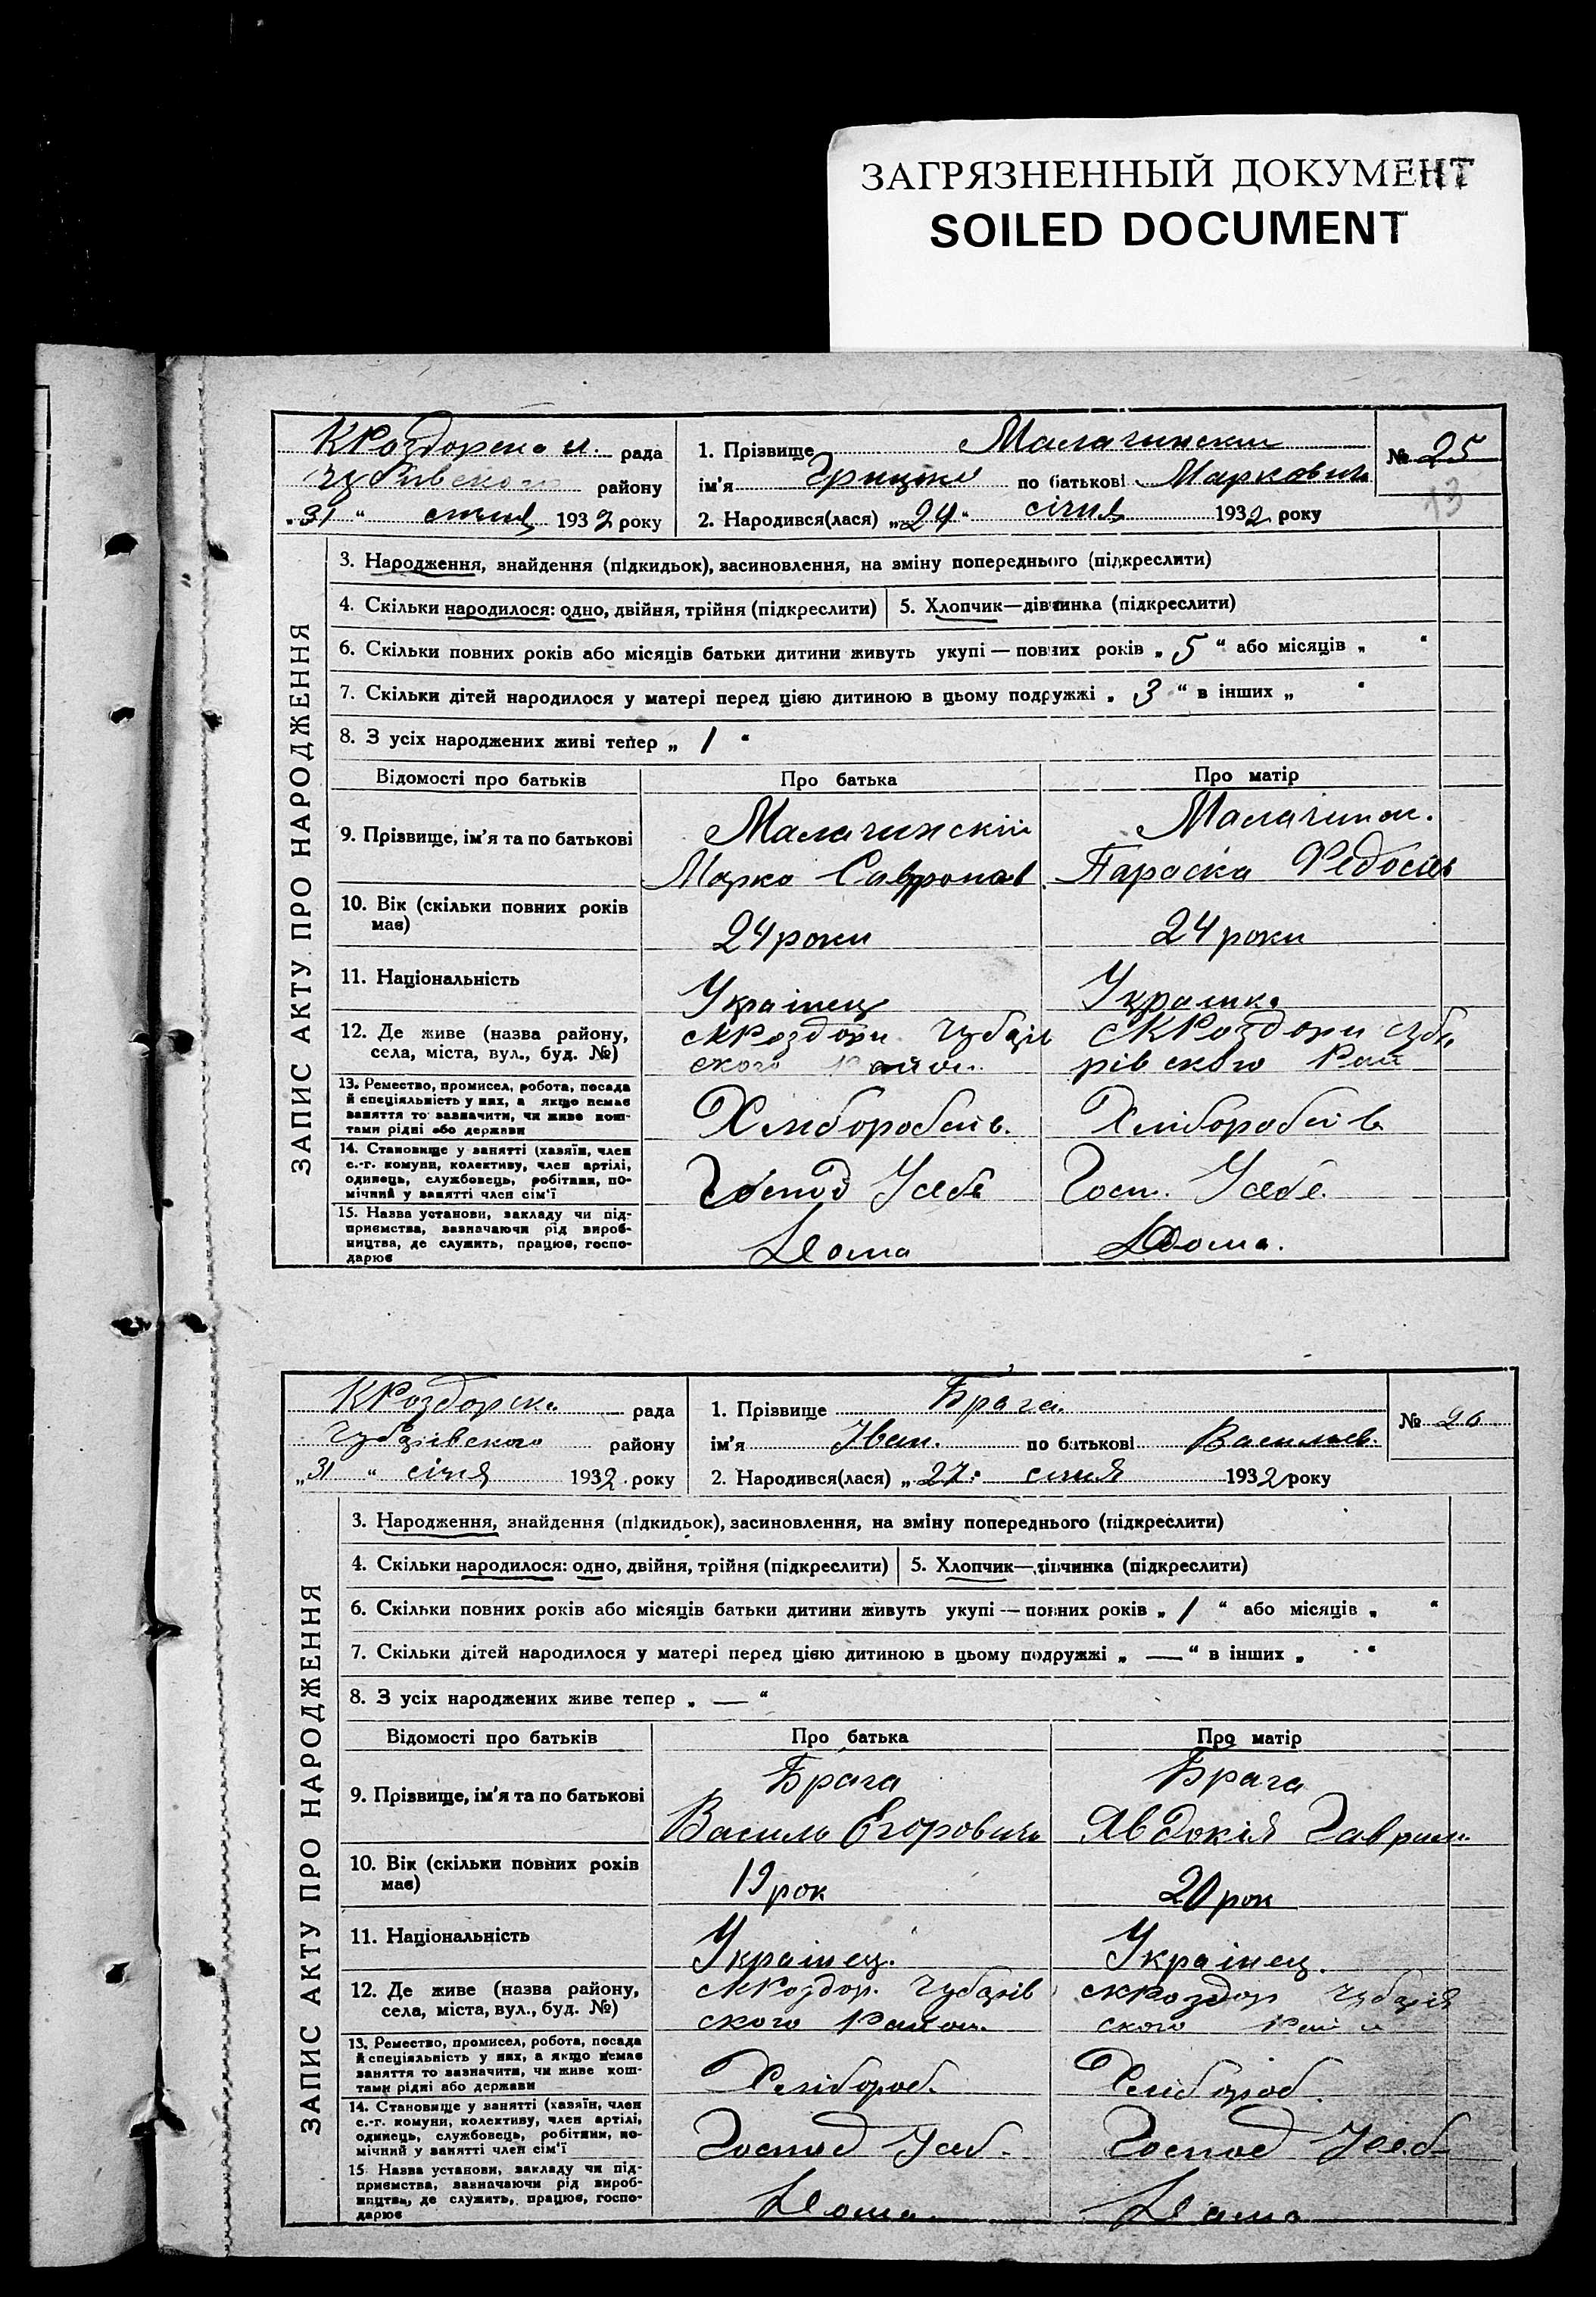 ЗАГРЯЗНЕННЫЙ ДОКУМЕНТ
SOILED DOCUMENT
рада
1. Прізвище
№ 25
району
ім'я Грицько по батькові Маркович
13
„31 “ січня 1932 року
2. Народився(лася) „24“ січня 1932 року
ЗАПИС АКТУ ПРО НАРОДЖЕННЯ
3. Народження, знайдення (підкидьок), засиновлення, на зміну попереднього (підкреслити)
4. Скільки народилося: одно, двійня, трійня (підкреслити)
5. Хлопчик—дівчинка (підкреслити)
6. Скільки повних років або місяців батьки дитини живуть укупі — повних років „ 5 “ або місяців „ “
7. Скільки дітей народилося у матері перед цією дитиною в цьому подружжі „ 3 “ в інших „ “
8. З усіх народжених живі тепер „ 1 “
Відомості про батьків
Про батька
Про матір
9. Прізвище, ім'я та по батькові
Малачинскій
Марко
Параска
10. Вік (скільки повних років
має)
24 роки
24 роки
11. Національність
Украінец
Украинк.
12. Де живе (назва району,
села, міста, вул., буд. №)
ского
рівского Рай
13. Ремество, промисел, робота, посада
й спеціяльність у них, а якщо немає
заняття то зазначити, чи живе кош-
тами рідні або держави
14. Становище у занятті (хазяїн, член
с.-г. комуни, колективу, член артілі,
одинець, службовець, робітник, по-
мічний у занятті член сім'ї
Господ
Госп.
15. Назва установи, закладу чи під-
приємства, зазначаючи рід вироб-
ництва, де служить, працює, госпо-
дарює
Дома
Дома.
рада
1. Прізвище Брага
№ 26
району
ім'я Іван. по батькові Васильев.
„31 “ січня 1932 року
2. Народився(лася) „27“ січня 1932 року
ЗАПИС АКТУ ПРО НАРОДЖЕННЯ
3. Народження, знайдення (підкидьок), засиновлення, на зміну попереднього (підкреслити)
4. Скільки народилося: одно, двійня, трійня (підкреслити)
5. Хлопчик—дівчинка (підкреслити)
6. Скільки повних років або місяців батьки дитини живуть укупі — повних років „ 1 “ або місяців „ “
7. Скільки дітей народилося у матері перед цією дитиною в цьому подружжі „ — “ в інших „ “
8. З усіх народжених живе тепер „ — “
Відомості про батьків
Про батька
Про матір
9. Прізвище, ім'я та по батькові
Брага
Брага
Василь Егорович
Явдокія
10. Вік (скільки повних рохів
має)
19 рок
20 рок
11. Національність
Украінец.
Украінец.
12. Де живе (назва району,
села, міста, вул., буд. №)
ского Район.
ского
13. Ремество, промисел, робота, посада
й спеціяльність у них, а якщо немає
заняття то зазначити, чи живе кош-
тами рідні або держави
Хлібороб.
Хлібороб.
14. Становище у занятті (хазяїн, член
с.-г. комуни, колективу, член артілі,
одинець, службовець, робітник, по-
мічний у занятті член сім'ї
Господ
Господ
15. Назва установи, закладу чи під-
приємства, зазначаючи рід вироб-
ництва, де служить, працює, госпо-
дарює
Дома
Дома